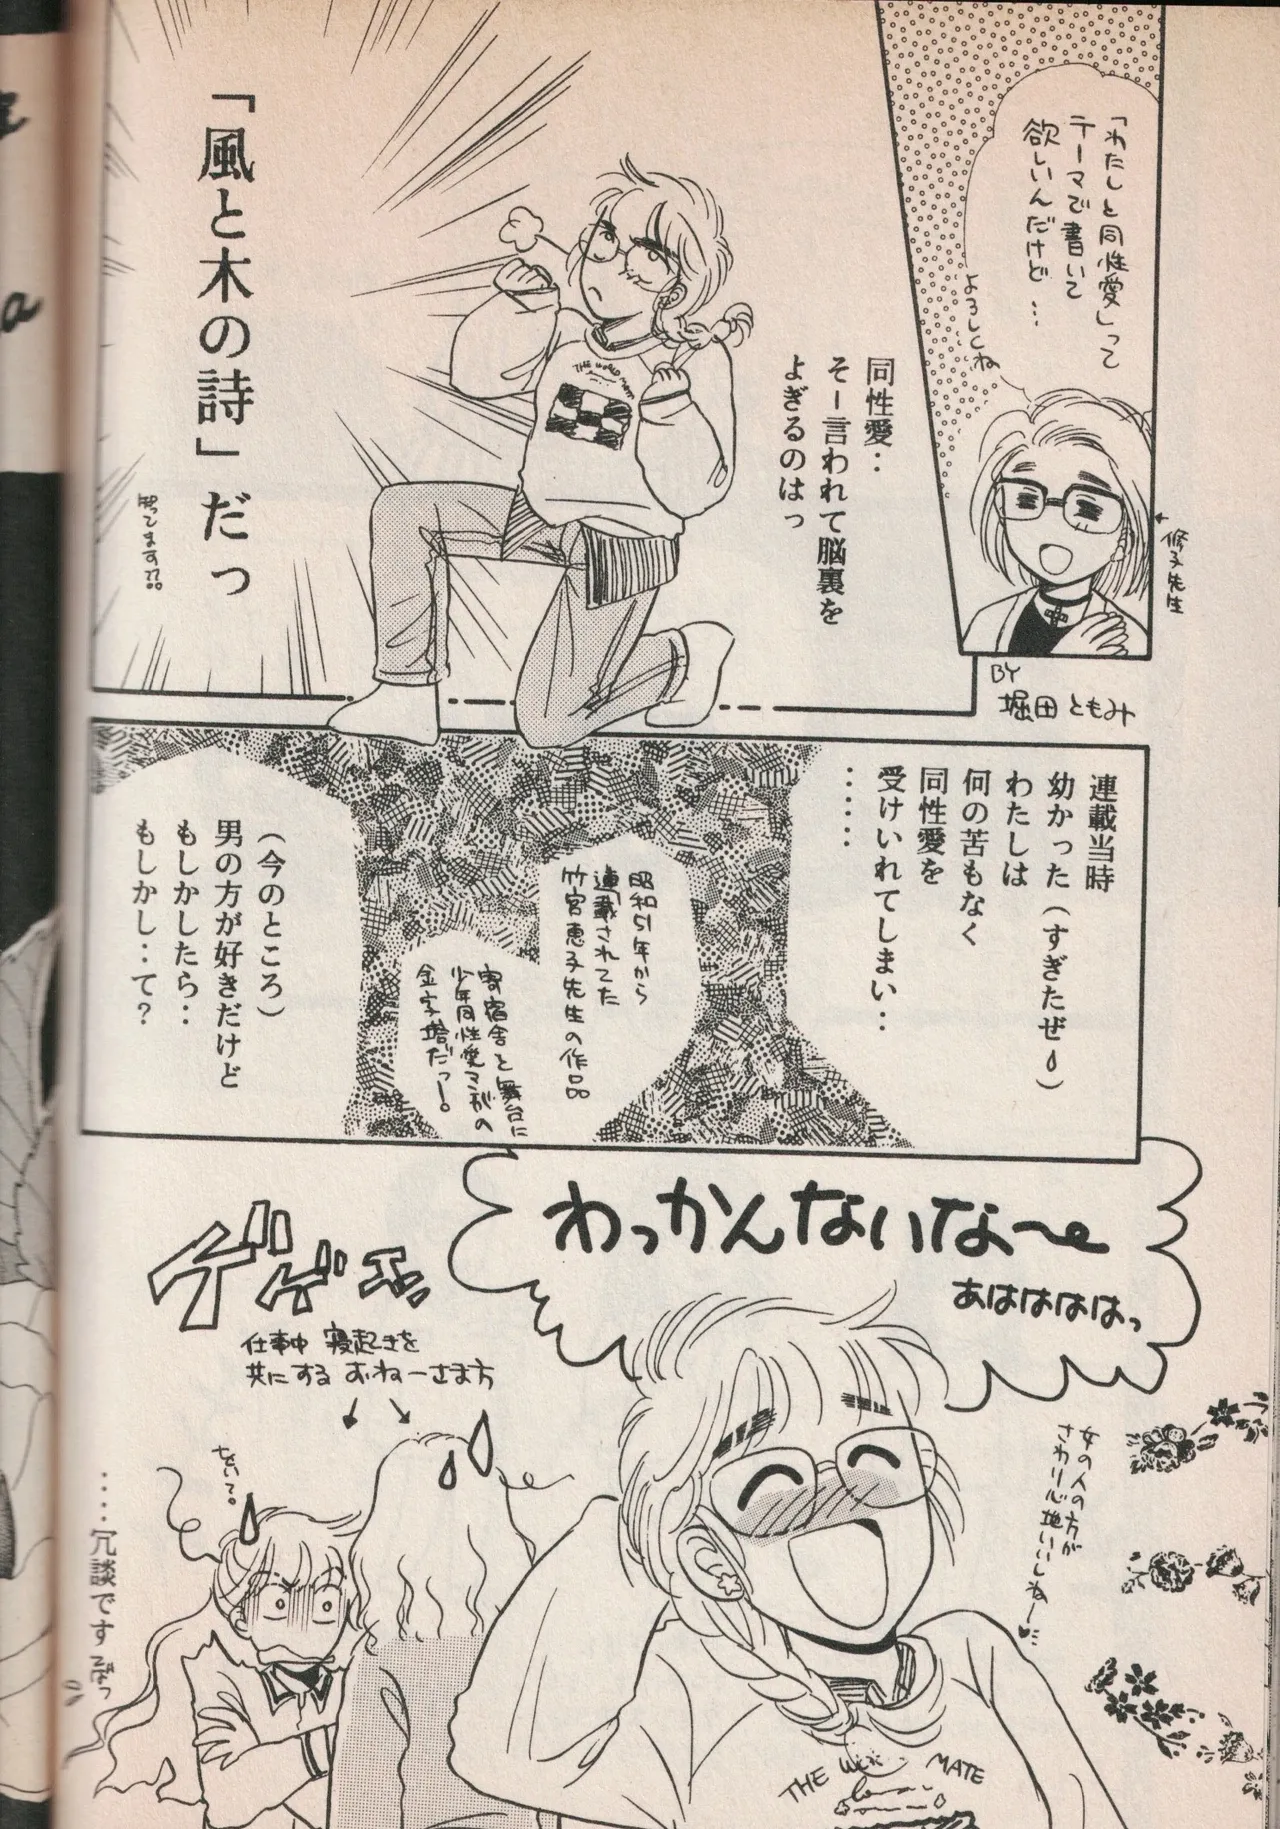 「わたしと同性愛」って
テーマで書いて
欲しいんだけど…
よろしくね
修子先生
BY
堀田ともみ
同性愛‥
そー言われて脳裏を
よぎるのはっ
THE WORLD MATE
「風と木の詩」だっ
知ってます??
連載当時
幼かった（すぎたぜ）
わたしは
何の苦もなく
同性愛を
受けいれてしまい‥
‥‥‥
昭和51年から
連載されてた
竹宮恵子先生の作品
寄宿舎を舞台に
少年同性愛マンガの
金字塔だっー。
（今のところ）
男の方が好きだけど
もしかしたら‥
もしかし‥て？
わっかんないな〜
あはははははっ
女の人の方が
さわり心地いいしねー♥…
ゲゲゲェッ
仕事中 寝起きを
共にする おねーさま方
‥‥冗談ですってばっ
THE
MATE